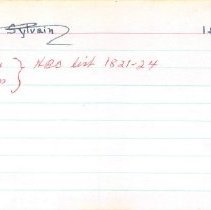 Sylvain
} HBC list 1821-24